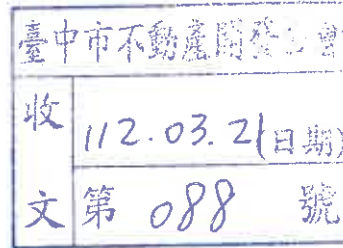 臺中市不動產開發公會
收文
112.03.21(日期)
第 088 號